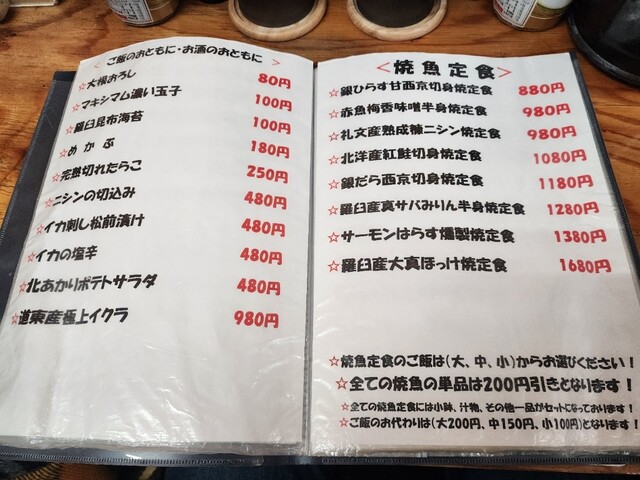 ＜ ご飯のおともに・お酒のおともに ＞
☆大根おろし 80円
☆マキシマム濃い玉子 100円
☆羅臼昆布海苔 100円
☆めかぶ 180円
☆完熟切れたらこ 250円
☆ニシンの切込み 480円
☆イカ刺し松前漬け 480円
☆イカの塩辛 480円
☆北あかりポテトサラダ 480円
☆道東産極上イクラ 980円
＜焼魚定食＞
☆銀ひらす甘西京切身焼定食 880円
☆赤魚梅香味噌半身焼定食 980円
☆礼文産熟成糠ニシン焼定食 980円
☆北洋産紅鮭切身焼定食 1080円
☆銀だら西京切身焼定食 1180円
☆羅臼産真サバみりん半身焼定食 1280円
☆サーモンはらす燻製焼定食 1380円
☆羅臼産大真ほっけ焼定食 1680円
☆焼魚定食のご飯は(大、中、小)からお選びください！
☆全ての焼魚の単品は200円引きとなります！
☆全ての焼魚定食には小鉢、汁物、その他一品がセットになっております！
☆ご飯のお代わりは(大200円、中150円、小100円)となます！